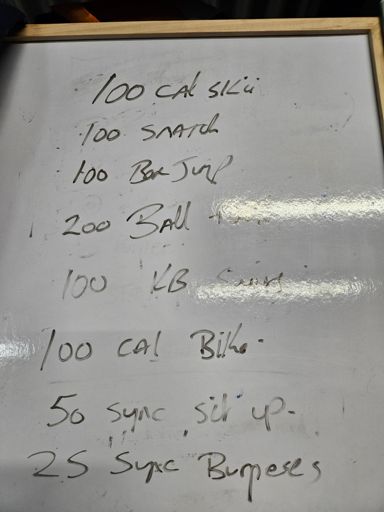 100 CAL SKii
100 SNATCh
100 Box Jump
200 BAll
100 KB Swings
100 CAl Bike.
50 Sync sit up.
25 Sync Burpeses